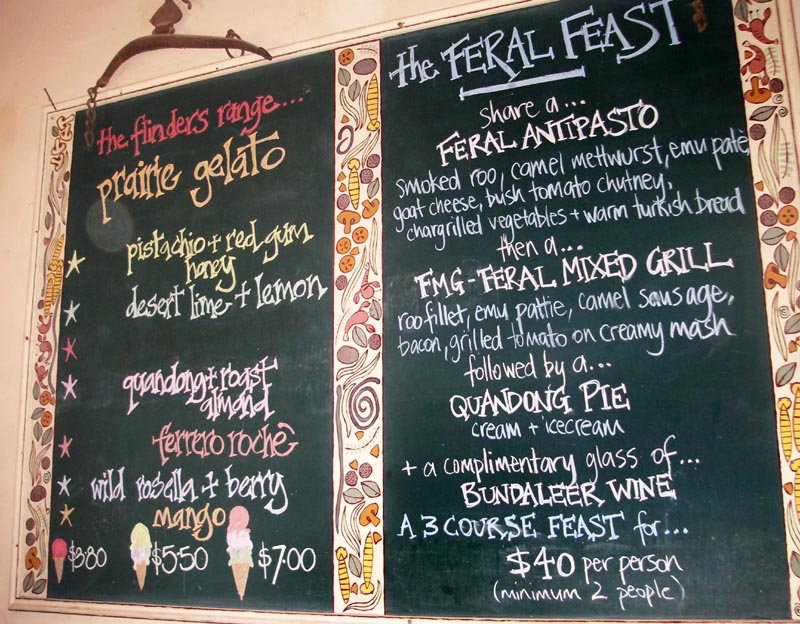 the flinders range...
prairie gelato
pistachio + red gum
honey
desert lime + lemon
quandong + roast
almond
ferrero rochè
wild rosella + berry
mango
$3.80 $5.50 $7.00
the FERAL FEAST
share a...
FERAL ANTIPASTO
smoked roo, camel mettwurst, emu patè
goat cheese, bush tomato chutney,
chargrilled vegetables + warm turkish bread
then a...
FMG-FERAL MIXED GRILL
roo fillet, emu pattie, camel sausage,
bacon, grilled tomato on creamy mash
followed by a...
QUANDONG PIE
cream + icecream
+ a complimentary glass of...
BUNDALEER WINE
A 3 COURSE FEAST for...
$40 per person
(minimum 2 people)